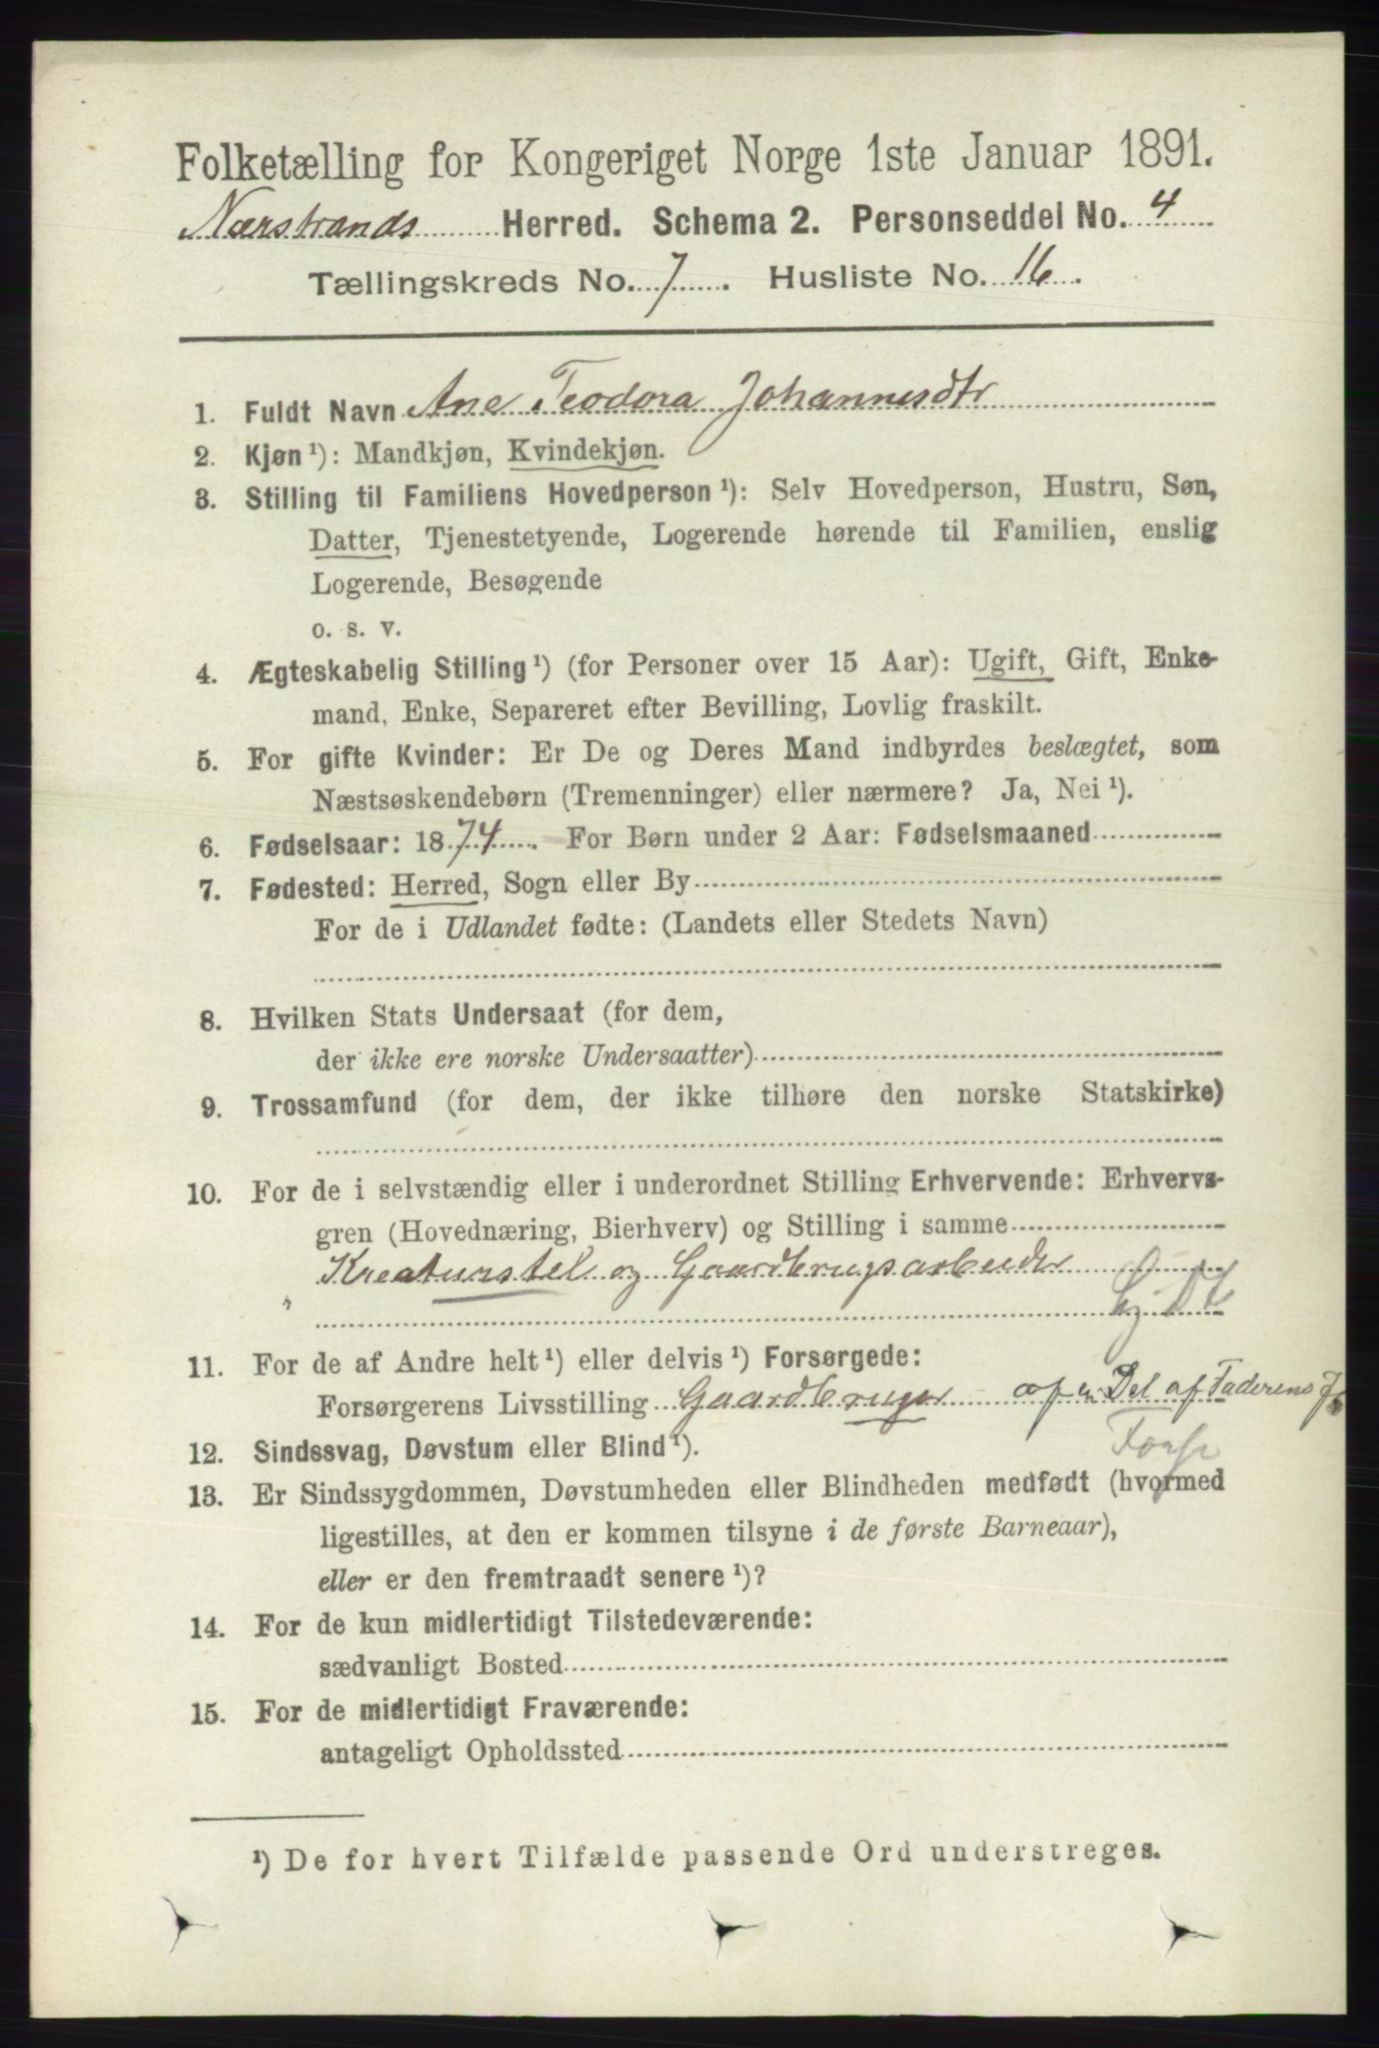 Folketælling for Kongeriget Norge 1ste Januar 1891.
Nærstrands Herred. Schema 2. Personseddel No. 4
Tællingskreds No. 7. Husliste No. 16.
1. Fuldt Navn Ane Teodora Johannesdtr
2. Kjøn ¹): Mandkjøn, Kvindekjøn.
3. Stilling til Familiens Hovedperson ¹): Selv Hovedperson, Hustru, Søn,
Datter, Tjenestetyende, Logerende hørende til Familien, enslig
Logerende, Besøgende
o. s. v.
4. Ægteskabelig Stilling ¹) (for Personer over 15 Aar): Ugift, Gift, Enke-
mand, Enke, Separeret efter Bevilling, Lovlig fraskilt.
5. For gifte Kvinder: Er De og Deres Mand indbyrdes beslægtet, som
Næstsøskendebørn (Tremenninger) eller nærmere? Ja, Nei ¹).
6. Fødselsaar: 1874. For Børn under 2 Aar: Fødselsmaaned
7. Fødested: Herred, Sogn eller By
For de i Udlandet fødte: (Landets eller Stedets Navn)
8. Hvilken Stats Undersaat (for dem,
der ikke ere norske Undersaatter)
9. Trossamfund (for dem, der ikke tilhøre den norske Statskirke)
10. For de i selvstændig eller i underordnet Stilling Erhvervende: Erhvervs-
gren (Hovednæring, Bierhverv) og Stilling i samme
Kreaturstel og Gaardbrugsarbeider
11. For de af Andre helt ¹) eller delvis ¹) Forsørgede:
Forsørgerens Livsstilling Gaardbruger af en Del af Faderens
12. Sindssvag, Døvstum eller Blind ¹).
13. Er Sindssygdommen, Døvstumheden eller Blindheden medfødt (hvormed
ligestilles, at den er kommen tilsyne i de første Barneaar),
eller er den fremtraadt senere ¹)?
14. For de kun midlertidigt Tilstedeværende:
sædvanligt Bosted
15. For de midlertidigt Fraværende:
antageligt Opholdssted
¹) De for hvert Tilfælde passende Ord understreges.